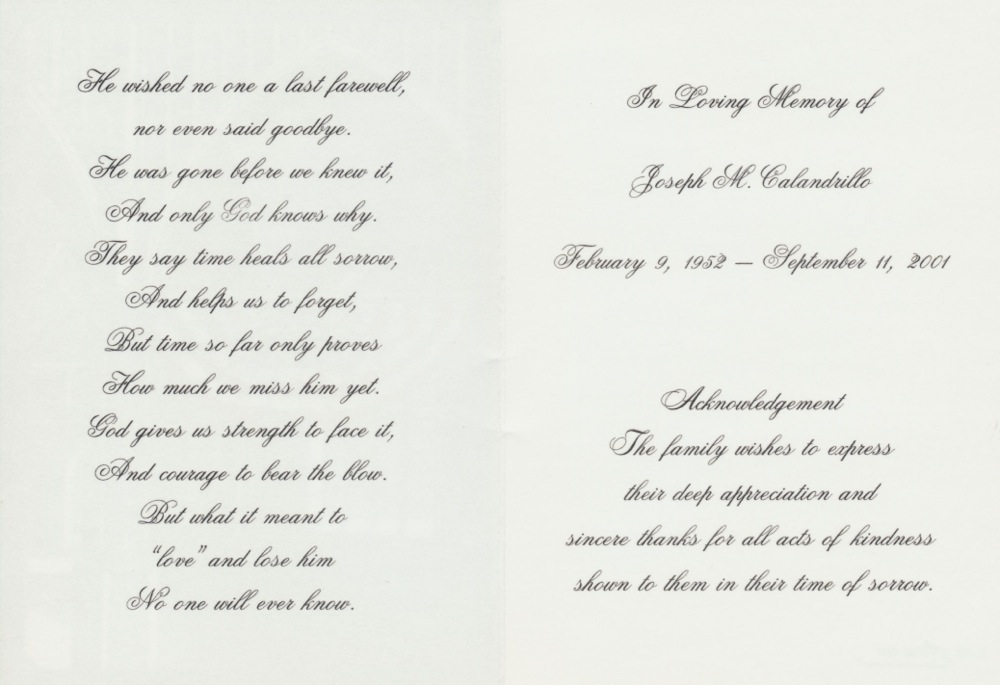 He wished no one a last farewell,
nor even said goodbye.
He was gone before we knew it,
And only God knows why.
They say time heals all sorrow,
And helps us to forget,
But time so far only proves
How much we miss him yet.
God gives us strength to face it,
And courage to bear the blow.
But what it meant to
“love” and lose him
No one will ever know.
In Loving Memory of
Joseph M. Calandrillo
February 9, 1952 — September 11, 2001
Acknowledgement
The family wishes to express
their deep appreciation and
sincere thanks for all acts of kindness
shown to them in their time of sorrow.